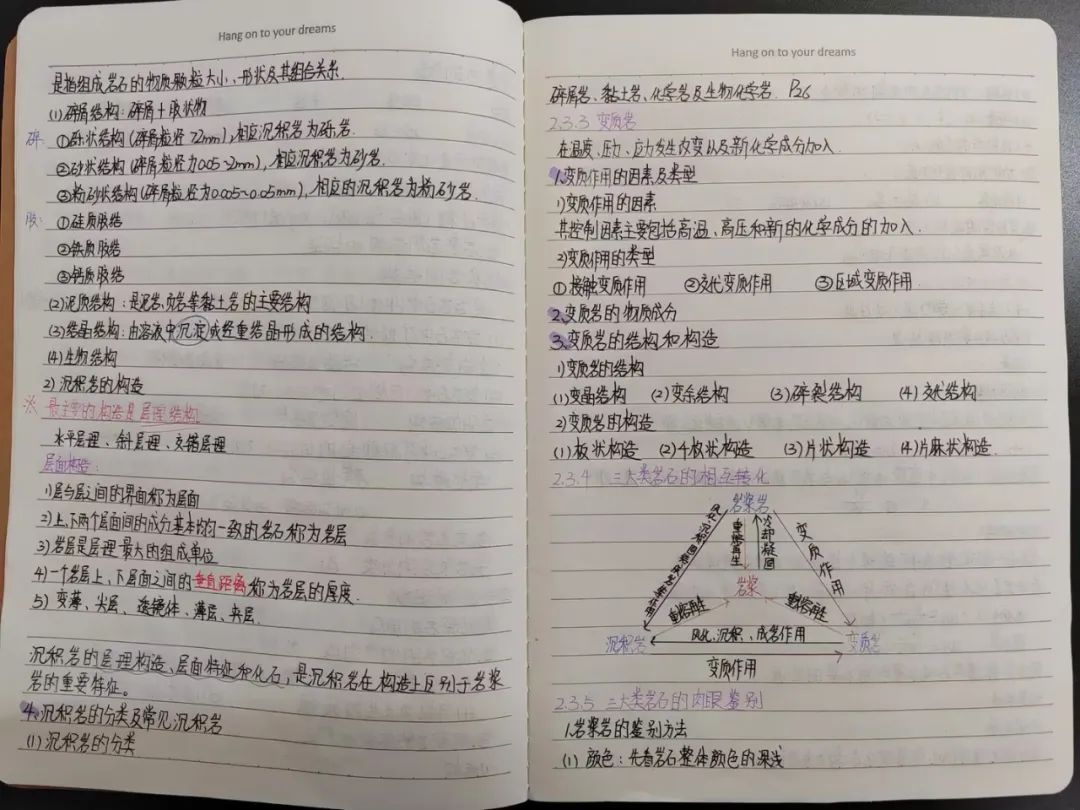 Hang on to your dreams
是指组成岩石的物质颗粒大小、形状及其组合关系.
(1)碎屑结构:碎屑+胶状物
碎:①砾状结构(碎屑粒径>2mm),相应沉积岩为砾岩.
②砂状结构(碎屑粒径为0.05~2mm),相应沉积岩为砂岩.
③粉砂状结构(碎屑粒径为0.005~0.05mm),相应的沉积岩为粉砂岩.
胶:①硅质胶结
②铁质胶结
③钙质胶结
(2)泥质结构:是泥岩、页岩等黏土岩的主要结构
(3)结晶结构:由溶液中沉淀或经重结晶形成的结构.
(4)生物结构
2)沉积岩的构造
※ 最主要的构造是层理结构
水平层理、斜层理、交错层理
层面构造:
1)层与层之间的界面称为层面
2)上、下两个层面间的成分基本均匀一致的岩石称为岩层
3)岩层是层理最大的组成单位
4)一个岩层上、下层面之间的垂直距离称为岩层的厚度.
5)变薄、尖层、透镜体、薄层、夹层.
沉积岩的层理构造、层面特征和化石,是沉积岩在构造上区别于岩浆
岩的重要特征。
4.沉积岩的分类及常见沉积岩
(1)沉积岩的分类
Hang on to your dreams
碎屑岩、黏土岩、化学岩及生物化学岩. P26
2.3.3 变质岩
在温度、压力、应力发生改变以及新化学成分加入.
1.变质作用的因素及类型
1)变质作用的因素
其控制因素主要包括高温、高压和新的化学成分的加入.
2)变质作用的类型
①接触变质作用 ②交代变质作用 ③区域变质作用
2.变质岩的物质成分
3.变质岩的结构和构造
1)变质岩的结构
(1)变晶结构 (2)变余结构 (3)碎裂结构 (4)交代结构
2)变质岩的构造
(1)板状构造 (2)千板状构造 (3)片状构造 (4)片麻状构造.
2.3.4 三大类岩石的相互转化
岩浆岩
重熔再生
冷却凝固
变质作用
岩浆
重熔再生
重熔再生
沉积岩
风化、沉积、成岩作用
变质岩
变质作用
2.3.5 三大类岩石的肉眼鉴别
1.岩浆岩的鉴别方法
(1) 颜色:先看岩石整体颜色的深浅